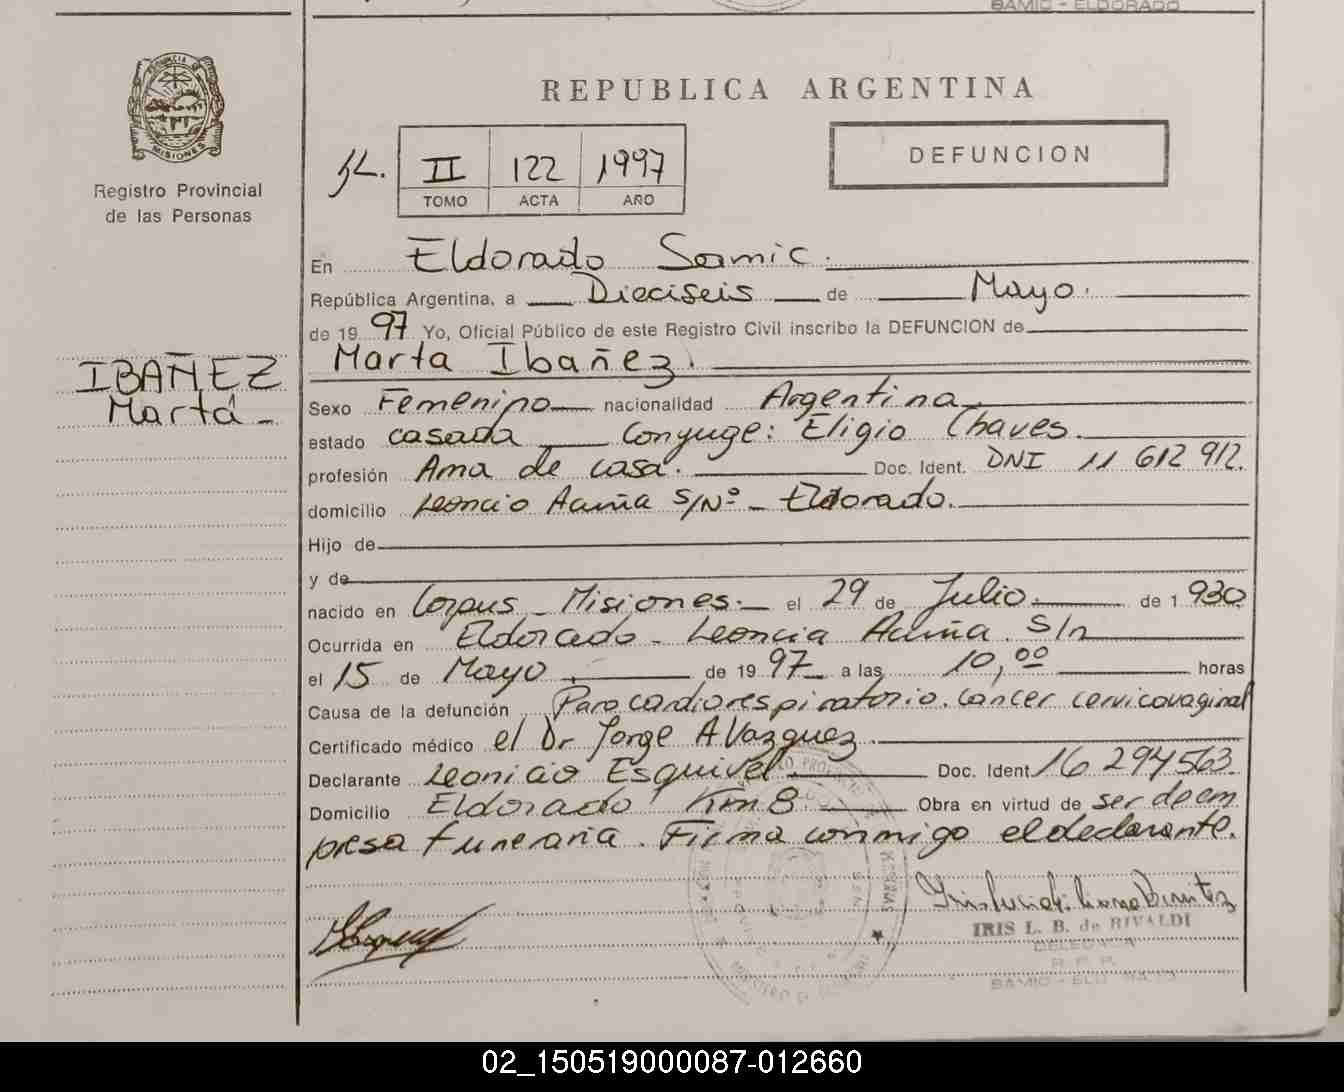 SAMIC - ELDORADO
PROVINCIA
MISIONES
Registro Provincial
de las Personas
REPUBLICA ARGENTINA
II 122 1997
TOMO ACTA AÑO
DEFUNCION
En Eldorado Samic.
República Argentina, a Dieciseis de Mayo.
de 19 97 Yo, Oficial Público de este Registro Civil inscribo la DEFUNCION de
Marta Ibañez.
IBAÑEZ
Marta -
Sexo Femenino nacionalidad Argentina
estado casada Conyuge: Eligio Chaves.
profesión Ama de casa. Doc. Ident. DNI 11 612 912.
domicilio Leoncio Acuña S/Nº - Eldorado.
Hijo de
y de
nacido en Corpus - Misiones. el 29 de Julio. de 1 930
Ocurrida en Eldorado - Leoncia Acuña S/n
el 15 de Mayo de 19 97 a las 10,00 horas
Causa de la defunción Paro cardiorespiratorio. cancer cervicovaginal
Certificado médico el Dr Jorge A Vazquez
Declarante Leonicio Esquivel Doc. Ident 16 294563
Domicilio Eldorado Km 8 Obra en virtud de ser de em
presa funeraria. Firma conmigo el declarante.
IRIS L. B. de RIVALDI
DELEGADA
R. P. P.
SAMIC - ELDORADO
02_150519000087-012660